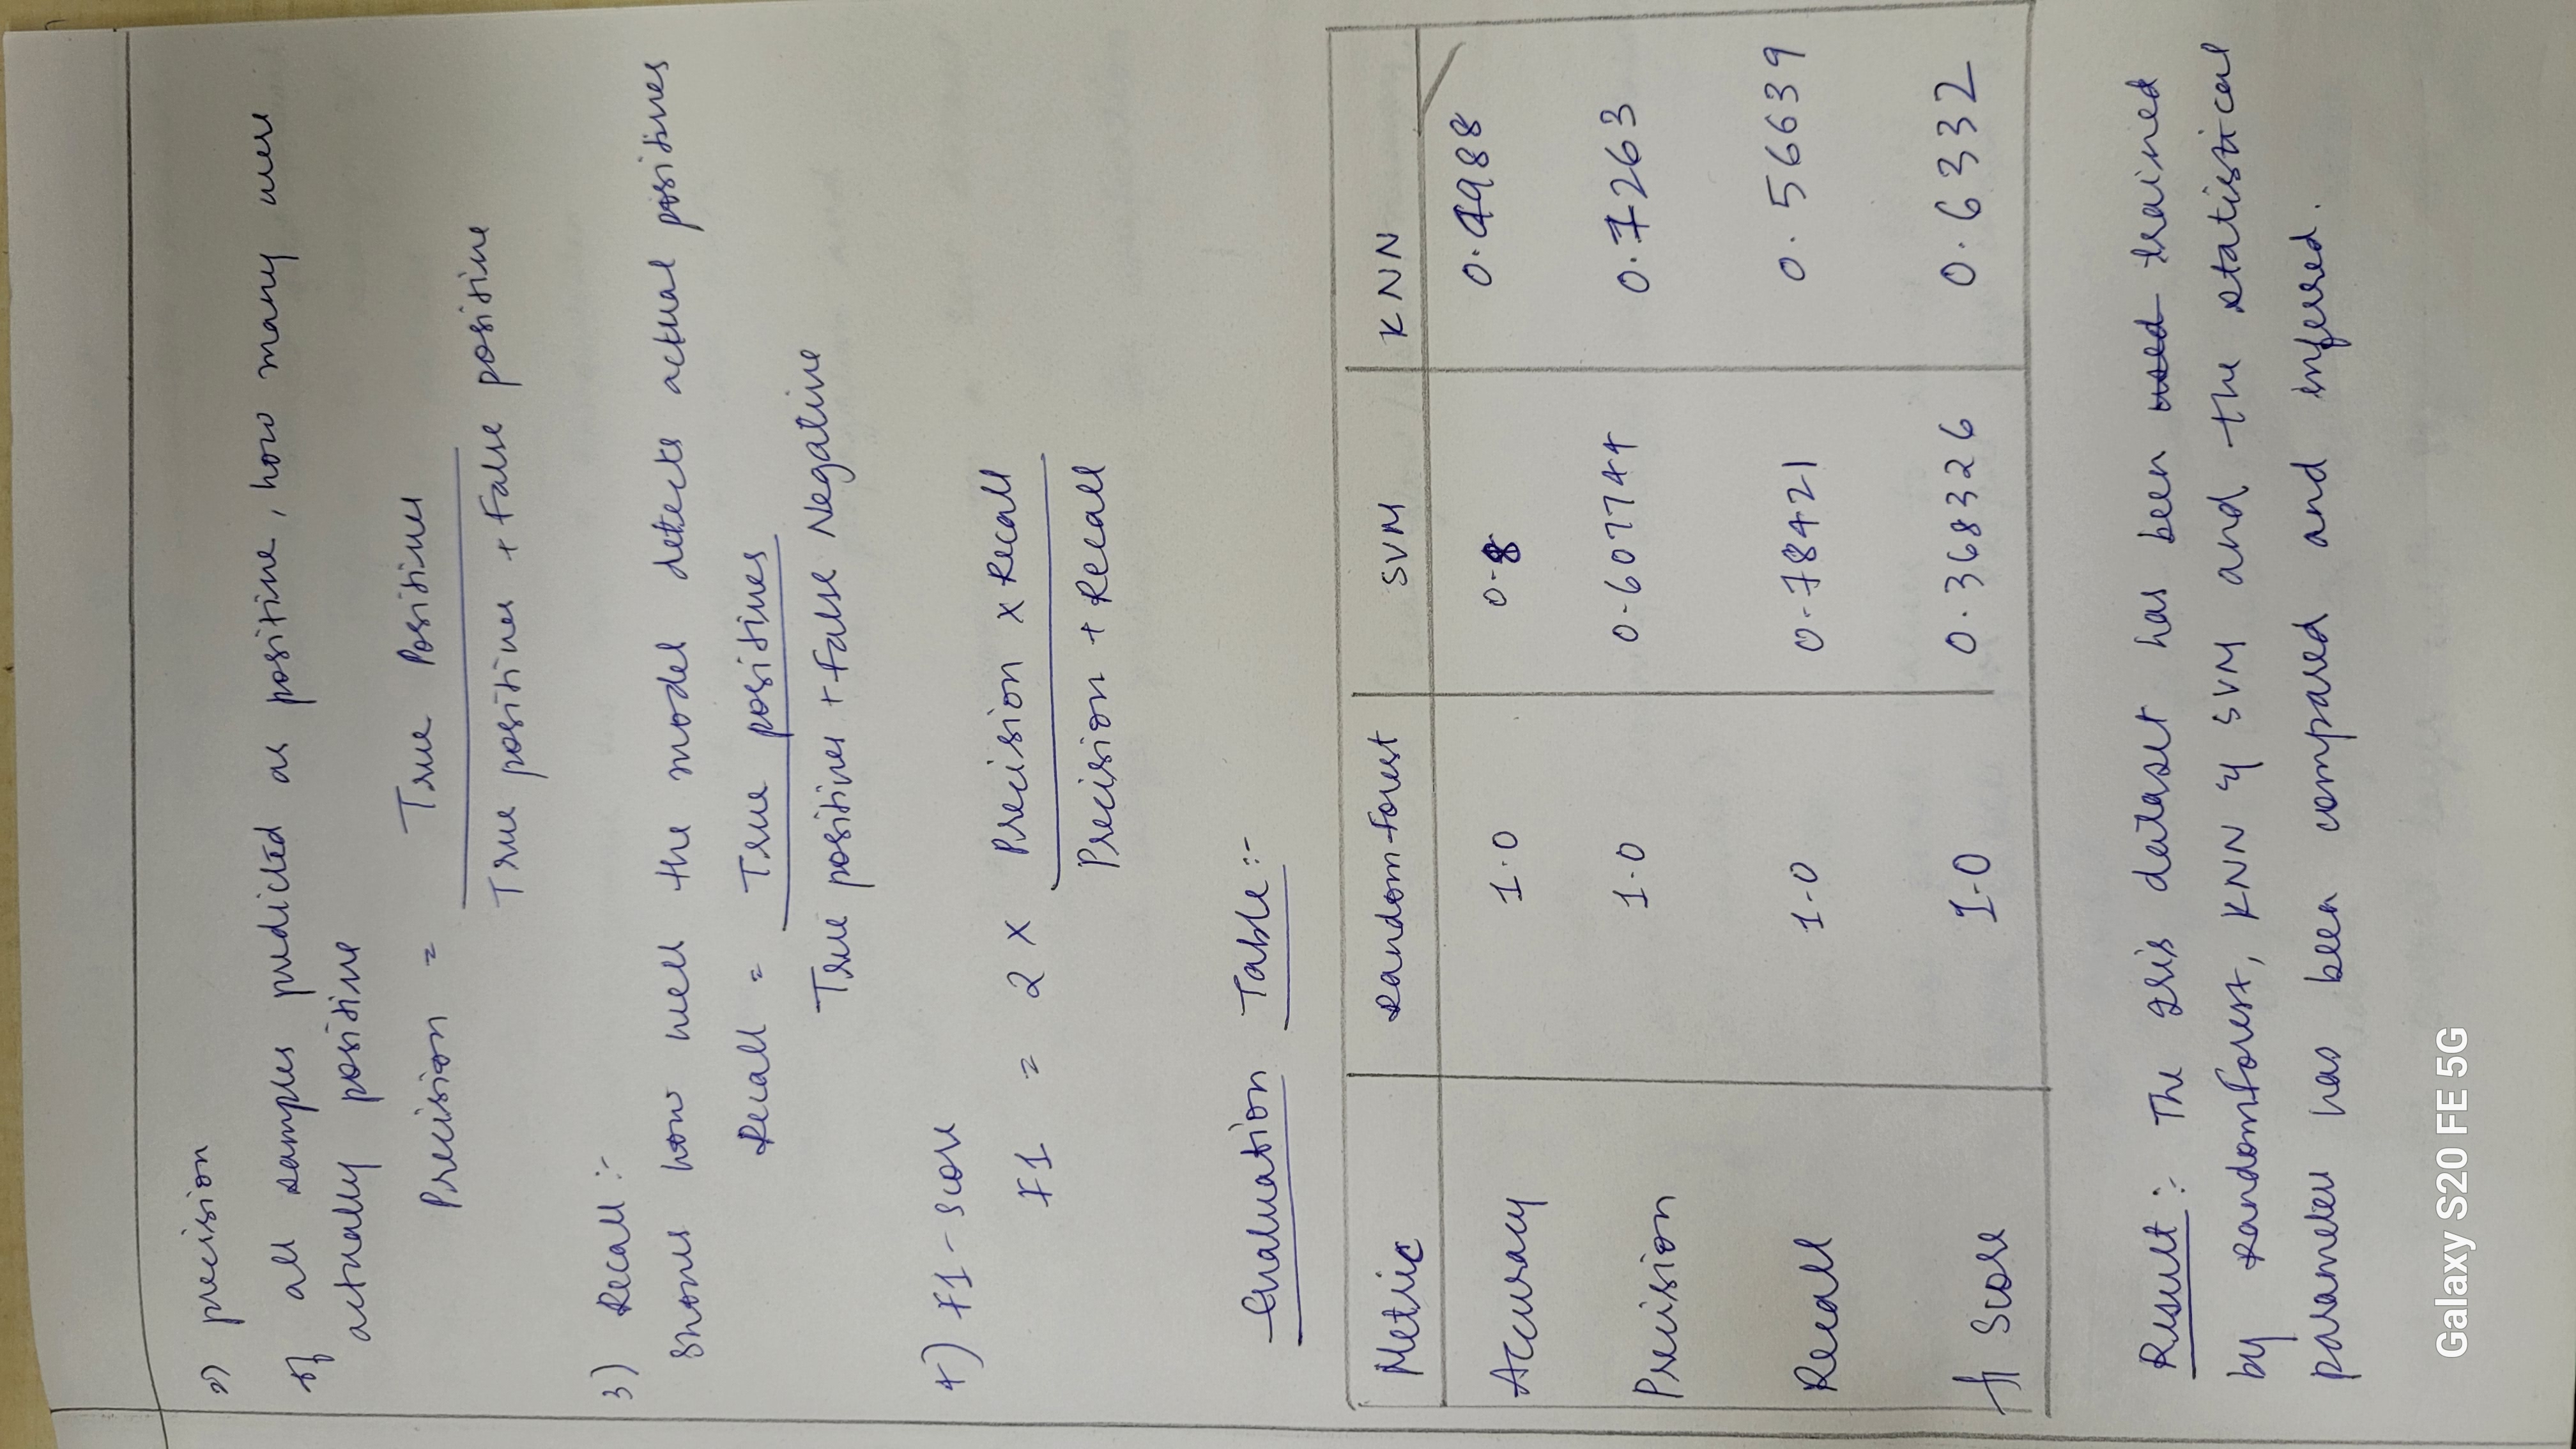 2) precision
of all samples predicted as positive, how many were
actually positive
Precision = True Positives
True positives + False positive
3) Recall :-
Shows how well the model detects actual positives
Recall = True positives
True positives + False Negative
4) F1 - Score
F1 = 2 x Precision x Recall
Precision + Recall
Evaluation Table :-
Metric Random forest SVM KNN
Accuracy 1.0 0.8
Precision 1.0 0.607744 0.7263
Recall 1.0 0.78421 0.56639
f1 Score 1.0 0.368326 0.6332
Result :- The Iris dataset has been used trained
by Random Forest, KNN & SVM and the statistical
parameters has been compared and inferred.
Galaxy S20 FE 5G